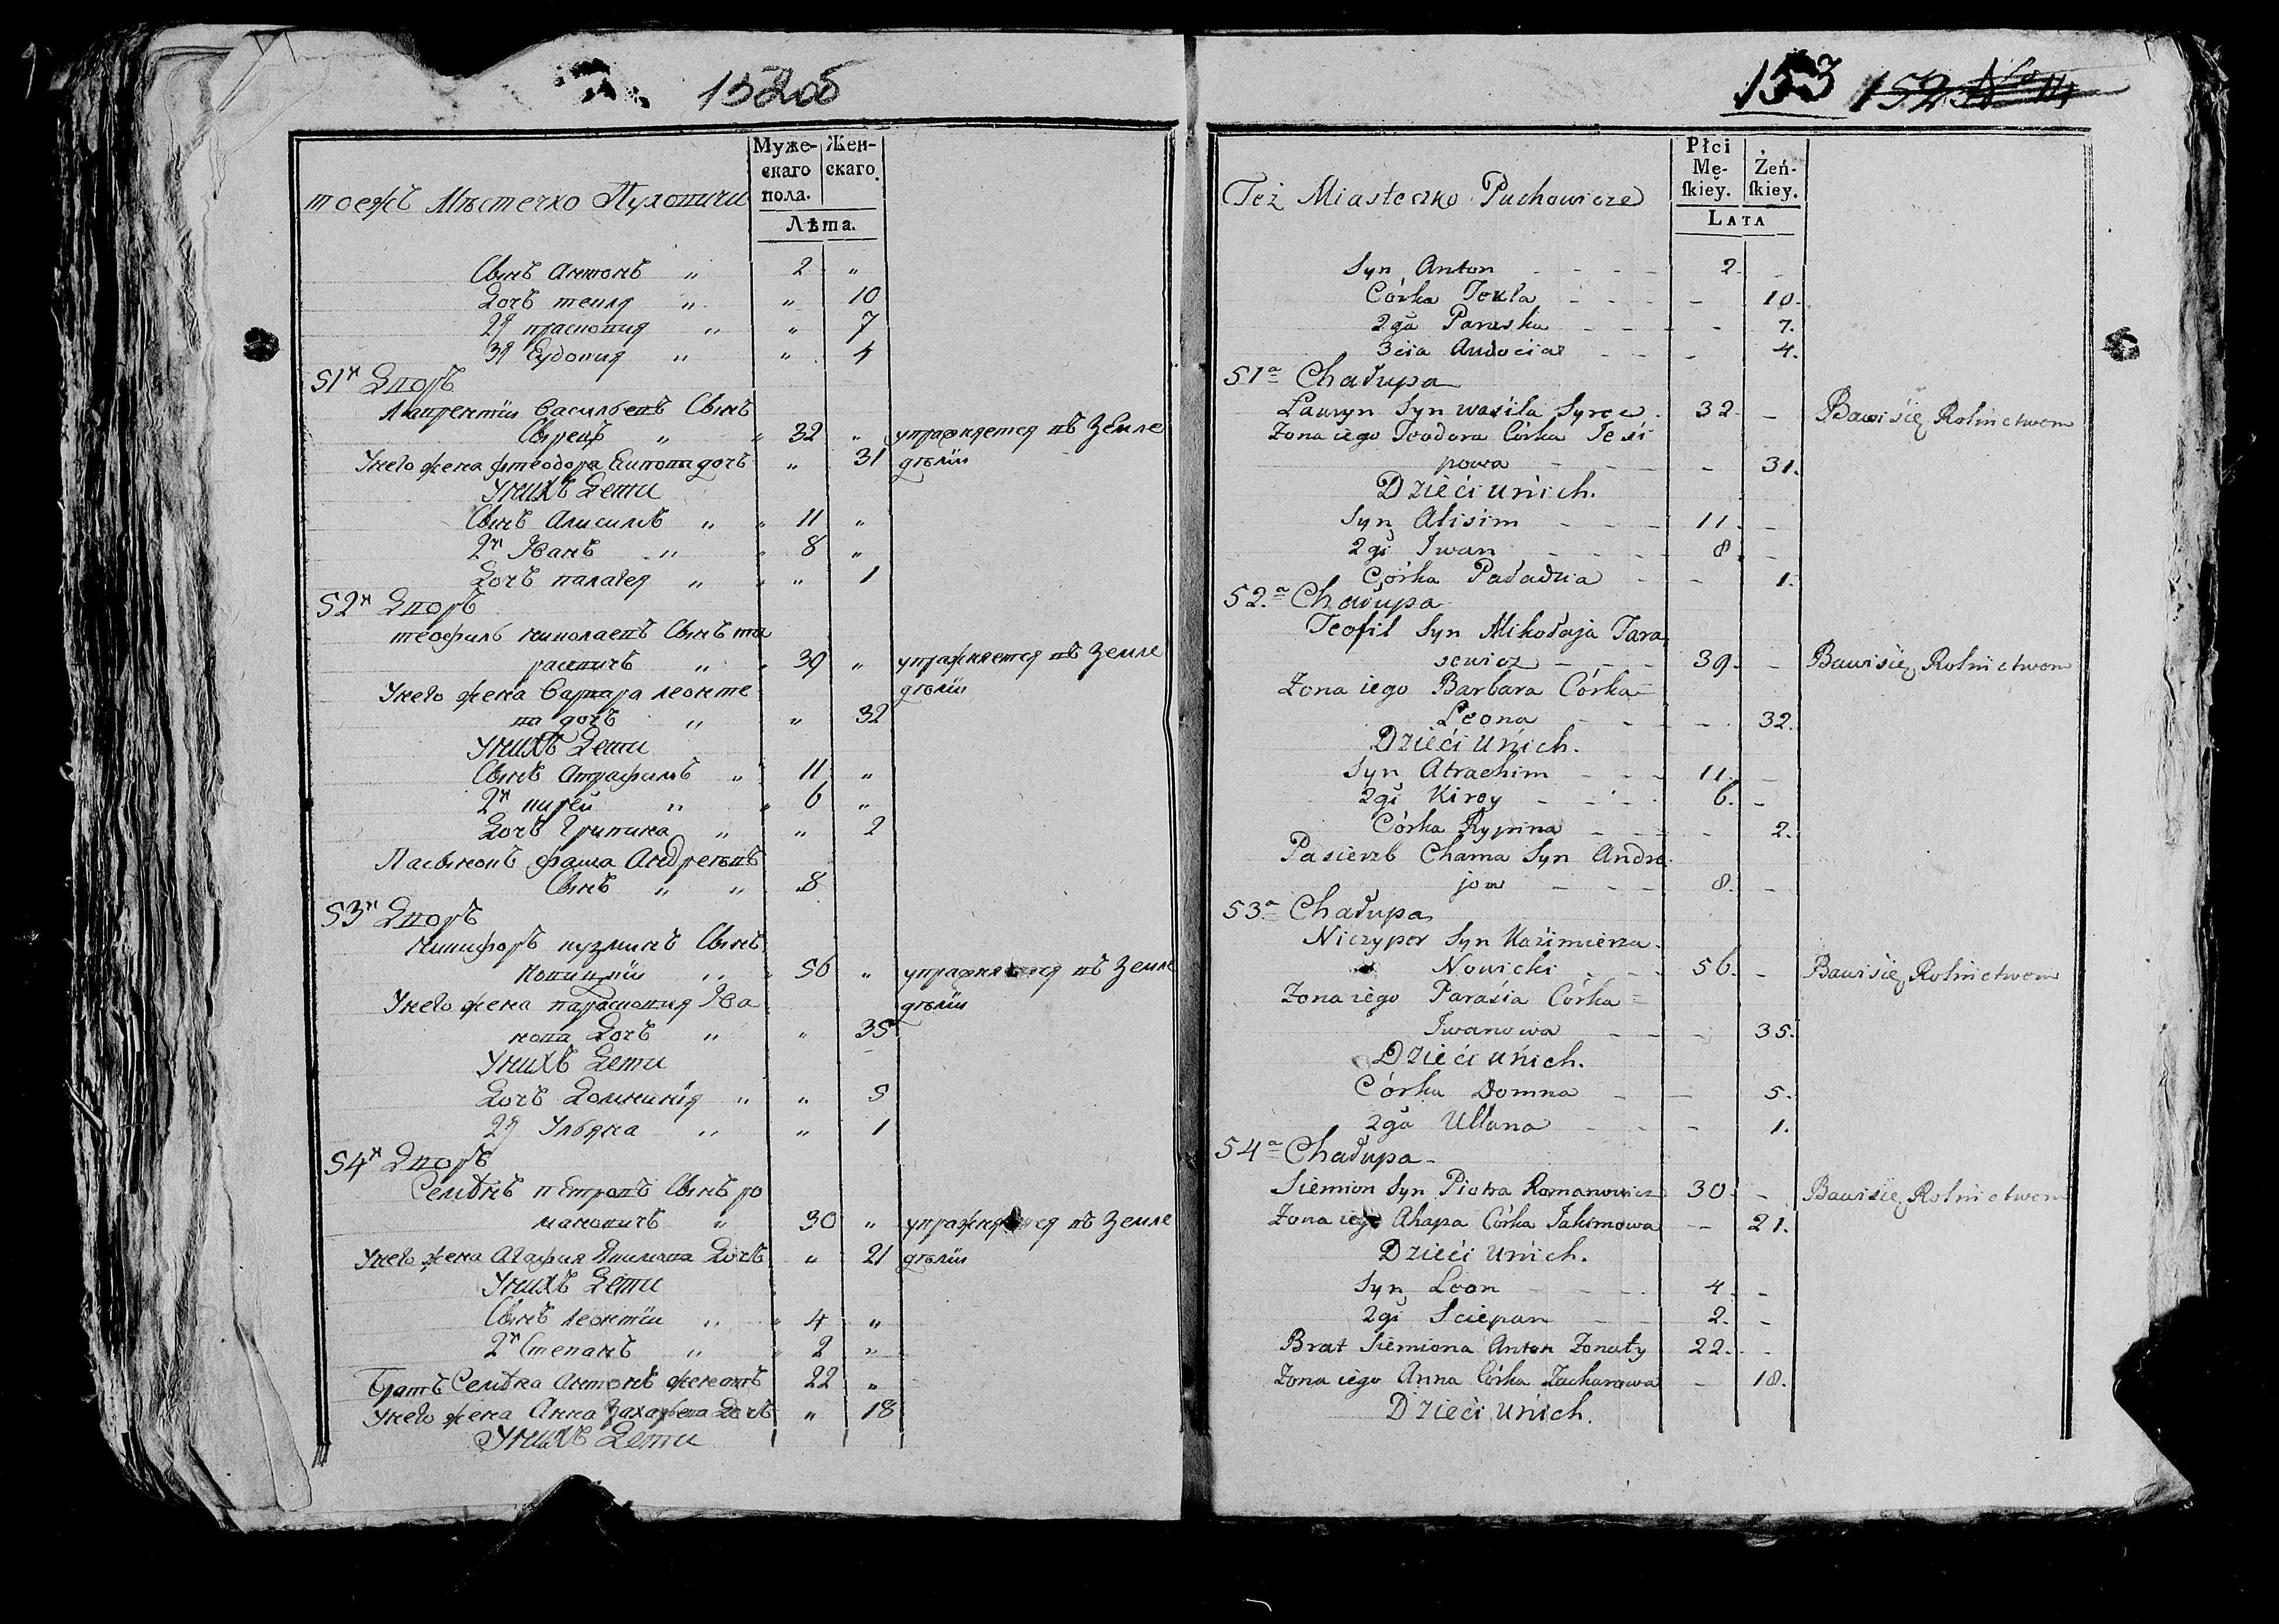 152об
Муже-
скаго
пола.
Жен-
скаго.
Лѣта.
тоежъ Мѣстечко Пуховичи
Сынъ Антонъ " 2 "
Дочь текля " " 10
2я прасковия " " 7
3я Еудокия " " 4
51й Дворъ
Лаврентiй Васильевъ Сынъ
Сырецъ " 32 " упражняется въ Земле
У него жена фтеодора Есипова дочь " 31 дѣлiи
У нихъ Дети
Сынъ Алисимъ " 11 "
2й Иванъ " 8 "
Дочь палагея " " 1
52й Дворъ
теофилъ николаевъ Сынъ та
расевичъ " 39 " упражняется въ Земле
У него жена Варвара леонте дѣлiи
ва дочь " " 32
У нихъ Дети
Сынъ Атрафимъ " 11 "
2й кирей " 6 "
Дочь Грипина " " 2
Пасынокъ фама Андреевъ
Сынъ " " 8
53й Дворъ
Никифоръ кузминъ Сынъ
Новицкiи " 56 " упражняется въ Земле
У него жена парасковия Ива дѣлiи
нова Дочь " " 35
У нихъ Дети
Дочь Домникiя " " 5
2я Ульяна " " 1
54й Дворъ
Семѣнъ пЕтровъ Сынъ ро
мановичъ " 30 " упражняется въ Земле
У него жена Агафия Якимова Дочь " 21 дѣлiи
У нихъ Дети
Сынъ леонтiи " 4 "
2й Степанъ " 2 "
Братъ Семѣна Антонъ женатъ 22 "
У него жена Анна Захарьева Дочь " 18
У нихъ Дети
153 152
Płci
Mę-
ſkieỹ.
Żeń-
ſkiey.
Lata
Też Miasteczko Puchowicze
Syn Anton 2. -
Córka Tekla - 10.
2ga Paraska - 7.
3cia Audocia - 4.
51a Chałupa
Lauryn Syn wasila Syrec 32. - Bawi się Rolnictwem
Żona iego Teodora Córka Jesi
powa - 31.
Dzieci u nich.
Syn Alisim 11. -
2gi Iwan 8. -
Córka Paładzia - 1.
52.a Chałupa
Teofil Syn Mikołaja Tara
sewicz 39. - Bawi się Rolnictwem
Żona iego Barbara Córka
Leona - 32.
Dzieci u nich.
Syn Atrachim 11. -
2gi Kirey 6. -
Córka Rypina - 2.
Pasierzb Chama Syn Andre
jow 8. -
53a Chałupa
Niczypor Syn Kazimierza
Nowicki 56. - Bawi się Rolnictwem
Żona iego Parasia Córka
Iwanowa - 35.
Dzieci u nich.
Córka Domna - 5.
2ga Ullana - 1.
54a Chałupa
Siemion Syn Piotra Romanowicz 30. - Bawi się Rolnictwem
Żona iego Ahapa Córka Jakimowa - 21.
Dzieci u nich.
Syn Leon 4. -
2gi Sciepan 2. -
Brat Siemiona Anton Żonaty 22. -
Żona iego Anna Córka Zacharowa - 18.
Dzieci u nich.